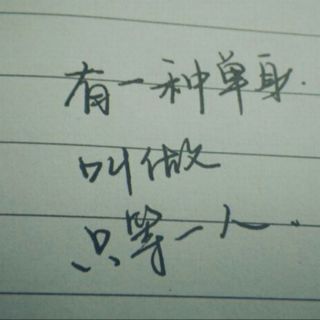 有一种单身.
叫做
只等一人.